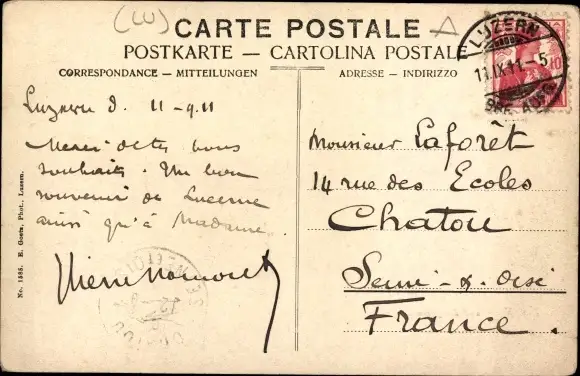 (LU)
CARTE POSTALE
POSTKARTE — CARTOLINA POSTALE
CORRESPONDANCE — MITTEILUNGEN
ADRESSE — INDIRIZZO
LUZERN
11.IX.11.-5
10
Luzern d. 11-9.11
Merci de tes bons
souhaits. Un bon
souvenir de Lucerne
ainsi qu'à Madame.
Monsieur Laforêt
14 rue des Ecoles
Chatou
Seine-&-Oise
France.
No. 1585. E. Goetz, Phot., Luzern.